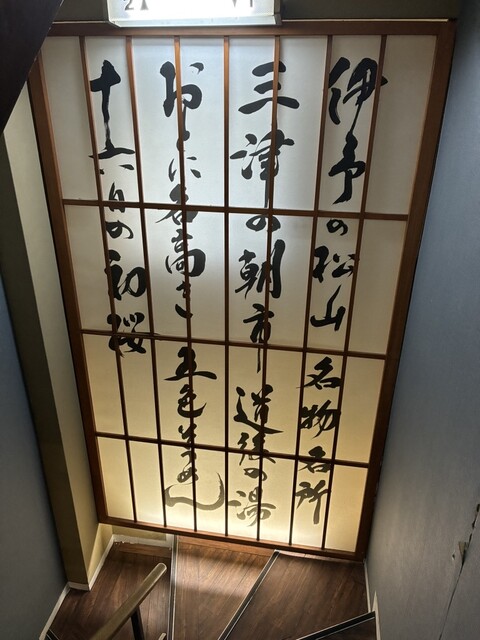 伊予の松山 名物名所
三津の朝市 道後の湯
おとに名高き 五色そうめん
十六日の初桜